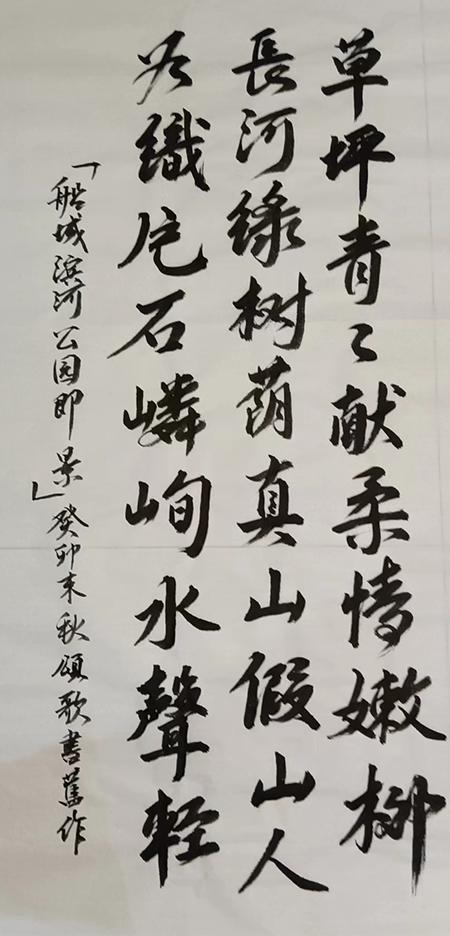 草坪青々献柔情嫩柳
長河綠树荫真山假山人
織危石嶙峋水聲輕
「船城滨河公园即景」癸卯末秋頌歌書舊作